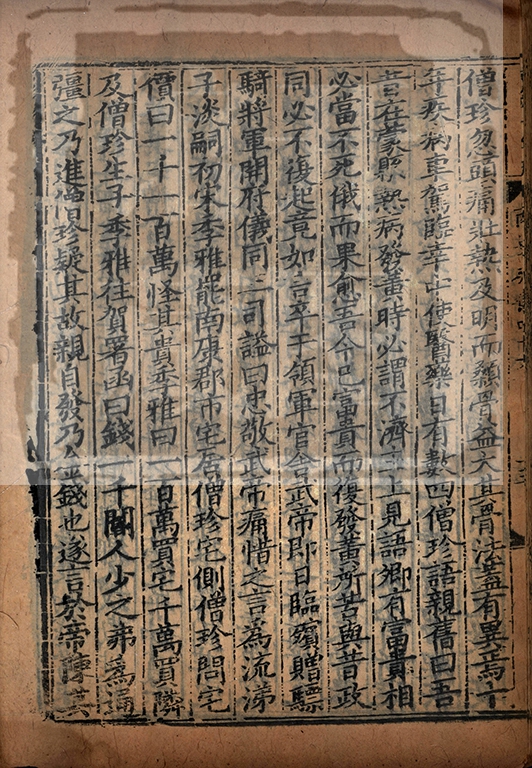 僧珍忽頭痛壯熱及明而顙骨益大其骨法蓋有異焉十
年疾病車駕臨幸中使醫藥日有數四僧珍語親舊曰吾
昔在蒙縣熱病發黃時必謂不濟主上見語卿有富貴相
必當不死俄而果愈吾今已富貴而復發黃所苦與昔政
同必不復起竟如言卒于領軍官舍武帝即日臨殯贈驃
騎將軍開府儀同三司諡曰忠敬武帝痛惜之言為流涕
子淡嗣初宋季雅罷南康郡市宅居僧珍宅側僧珍問宅
價曰一千一百萬怪其貴季雅曰一百萬買宅千萬買隣
及僧珍生子季雅往賀署函曰錢一千閽人少之弗為通
彊之乃進僧珍疑其故親自發乃金錢也遂言於帝陳其